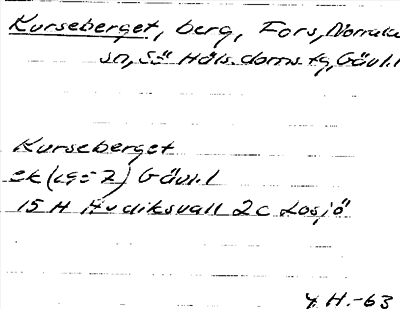 Kurseberget, berg, Fors, Norrala
sn, S:a Häls. doms. tg, Gävl. l
Kurseberget
ek (lg=Z) Gävl. l
15 H Hudiksvall 2c Losjö
Y.H.-63